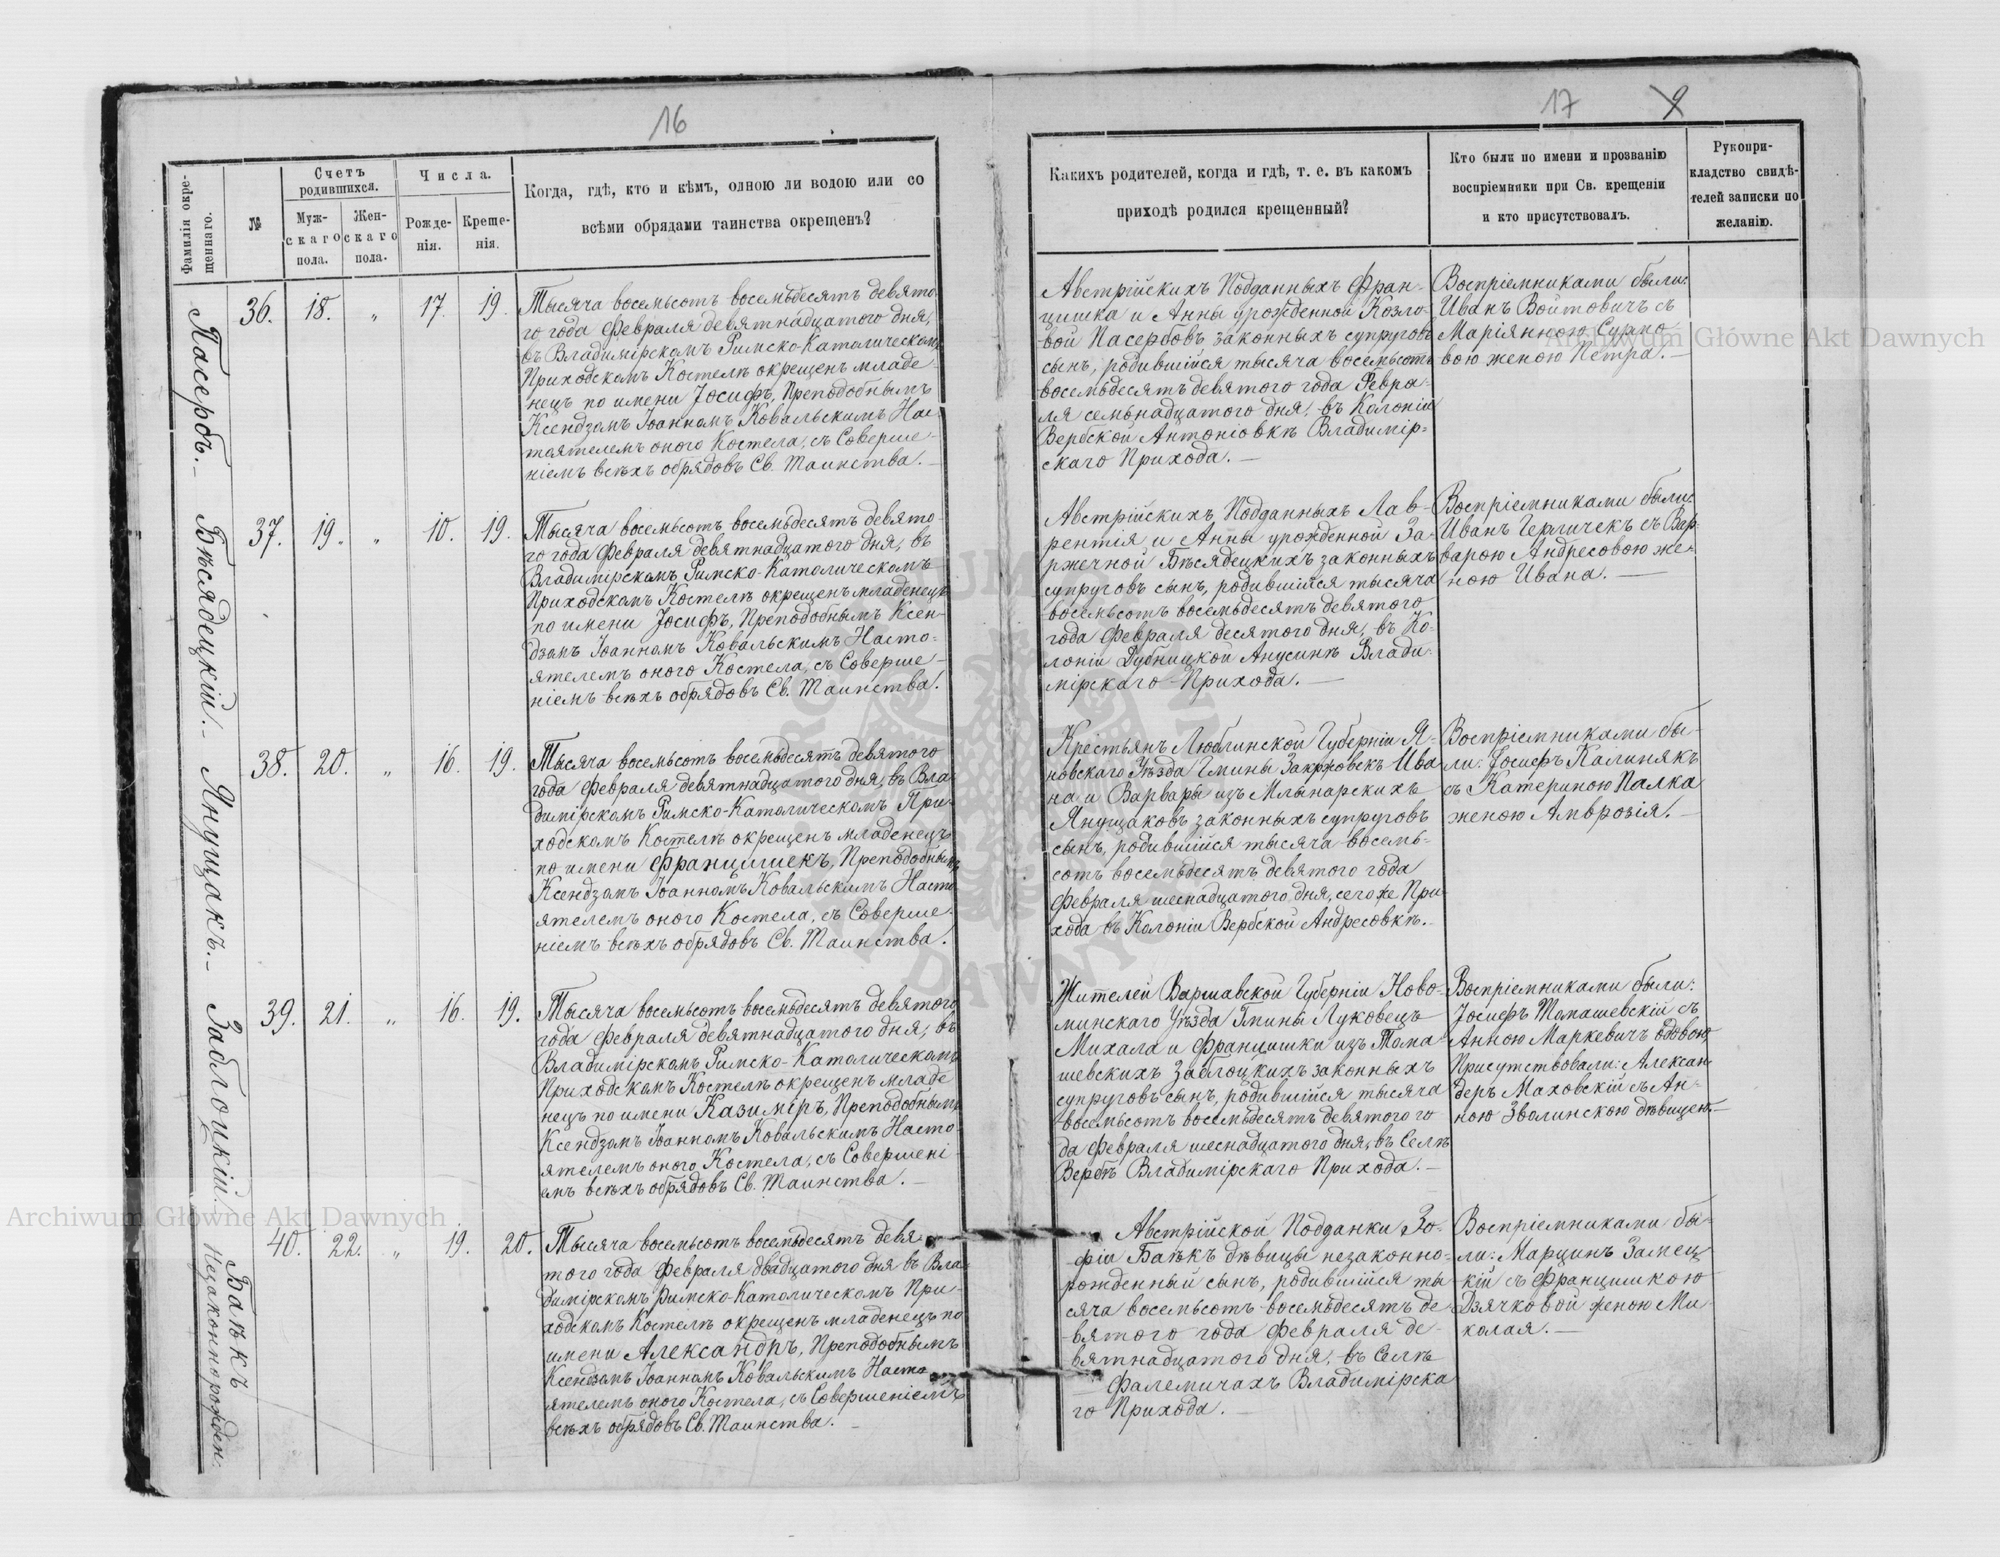 16
Фамилія окре-
щеннаго.
№
Счетъ
родившихся.
Муж-
скаго
пола.
Жен-
скаго
пола.
Числа.
Рожде-
нія.
Креще-
нія.
Когда, гдѣ, кто и кѣмъ, одною ли водою или со
всѣми обрядами таинства окрещенъ?
Пасербъ.
36. 18. „ 17. 19.
Тысяча восемьсотъ восемьдесятъ девято-
го года Февраля девятнадцатого дня,
въ Владимірскомъ Римско-Католическомъ
Приходскомъ Костелѣ окрещенъ младе-
нецъ по имени Іосифъ, Преподобнымъ
Ксендзомъ Іоанномъ Ковальскимъ Нас-
тоятелемъ оного Костела, съ Соверше-
ніемъ всѣхъ обрядовъ Св. Таинства. —
Бѣсядецкій.
37. 19. „ 10. 19.
Тысяча восемьсотъ восемьдесятъ девято-
го года Февраля девятнадцатого дня, въ
Владимірскомъ Римско-Католическомъ
Приходскомъ Костелѣ окрещенъ младенецъ
по имени Іосифъ, Преподобнымъ Ксен-
дзомъ Іоанномъ Ковальскимъ Насто-
ятелемъ оного Костела, съ Соверше-
ніемъ всѣхъ обрядовъ Св. Таинства.
Янущакъ.
38. 20. „ 16. 19.
Тысяча восемьсотъ восемьдесятъ девятого
года Февраля девятнадцатого дня, въ Вла-
димірскомъ Римско-Католическомъ При-
ходскомъ Костелѣ окрещенъ младенецъ
по имени Францишекъ, Преподобнымъ
Ксендзомъ Іоанномъ Ковальскимъ Насто-
ятелемъ оного Костела, съ Соверше-
ніемъ всѣхъ обрядовъ Св. Таинства.
Заблоцкій.
39. 21. „ 16. 19.
Тысяча восемьсотъ восемьдесятъ девятого
года Февраля девятнадцатого дня, въ
Владимірскомъ Римско-Католическомъ
Приходскомъ Костелѣ окрещенъ младе-
нецъ по имени Казиміръ, Преподобнымъ
Ксендзомъ Іоанномъ Ковальскимъ Насто-
ятелемъ оного Костела, съ Совершені-
емъ всѣхъ обрядовъ Св. Таинства. —
Баѣкъ
Незаконнорожден.
40. 22. „ 19. 20.
Тысяча восемьсотъ восемьдесятъ девя-
того года Февраля двадцатого дня въ Вла-
димірскомъ Римско-Католическомъ При-
ходскомъ Костелѣ окрещенъ младенецъ по
имени Александръ, Преподобнымъ
Ксендзомъ Іоанномъ Ковальскимъ Насто-
ятелемъ оного Костела, съ Совершеніемъ
всѣхъ обрядовъ Св. Таинства. —
17
9
Какихъ родителей, когда и гдѣ, т. е. въ какомъ
приходѣ родился крещенный?
Кто были по имени и прозванію
воспріемники при Св. крещеніи
и кто присутствовалъ.
Рукопри-
кладство свидѣ-
телей записки по
желанію.
Австрійскихъ Подданныхъ Фран-
цишка и Анны урожденной Козло-
вой Пасербовъ законныхъ супруговъ
сынъ, родившійся тысяча восемьсотъ
восемьдесятъ девятого года Февра-
ля семьнадцатого дня, въ Колоніи
Вербской Антоніовкѣ Владимір-
скаго Прихода. —
Воспріемниками были:
Иванъ Войтовичъ съ
Маріянною Сурмо-
вою женою Петра. —
Австрійскихъ Подданныхъ Лав-
рентія и Анны урожденной За-
ржечной Бѣсядецкихъ законныхъ
супруговъ сынъ, родившійся тысяча
восемьсотъ восемьдесятъ девятого
года Февраля десятого дня, въ Ко-
лоніи Дубницкой Анусинѣ Влади-
мірскаго Прихода. —
Воспріемниками были:
Иванъ Герличекъ съ Вар-
варою Андресовою же-
ною Ивана. —
Крестьянъ Люблинской Губерніи Я-
новскаго Уѣзда Гмины Закржовекъ Ива-
на и Варвары изъ Млынарскихъ
Янущаковъ законныхъ супруговъ
сынъ, родившійся тысяча восемь-
сотъ восемьдесятъ девятого года
Февраля шеснадцатого дня, сегоже При-
хода въ Колоніи Вербской Андресовкѣ. —
Воспріемниками бы-
ли: Іосифъ Калинякъ
съ Катериною Палка
женою Амврозія. —
Жителей Варшавской Губерніи Ново-
минскаго Уѣзда Гмины Луковецъ
Михала и Францишки изъ Тома-
шевскихъ Заблоцкихъ законныхъ
супруговъ сынъ, родившійся тысяча
восемьсотъ восемьдесятъ девятого го-
да Февраля шеснадцатого дня, въ Селѣ
Вербѣ Владимірскаго Прихода. —
Воспріемниками были:
Іосифъ Томашевскій съ
Анною Маркевичъ вдовою
Присутствовали: Алексан-
деръ Маховскій съ Ан-
ною Зволинскою дѣвицею. —
Австрійской Подданки Зо-
фіи Баѣкъ дѣвицы незаконно-
рожденный сынъ, родившійся ты-
сяча восемьсотъ восемьдесятъ де-
вятого года Февраля де-
вятнадцатого дня, въ Селѣ
Фалемичахъ Владимірска-
го Прихода. —
Воспріемниками бы-
ли: Марцинъ Замец-
кій съ Францишкою
Дзячковой женою Ми-
колая. —
Archiwum Główne Akt Dawnych
Archiwum Główne Akt Dawnych